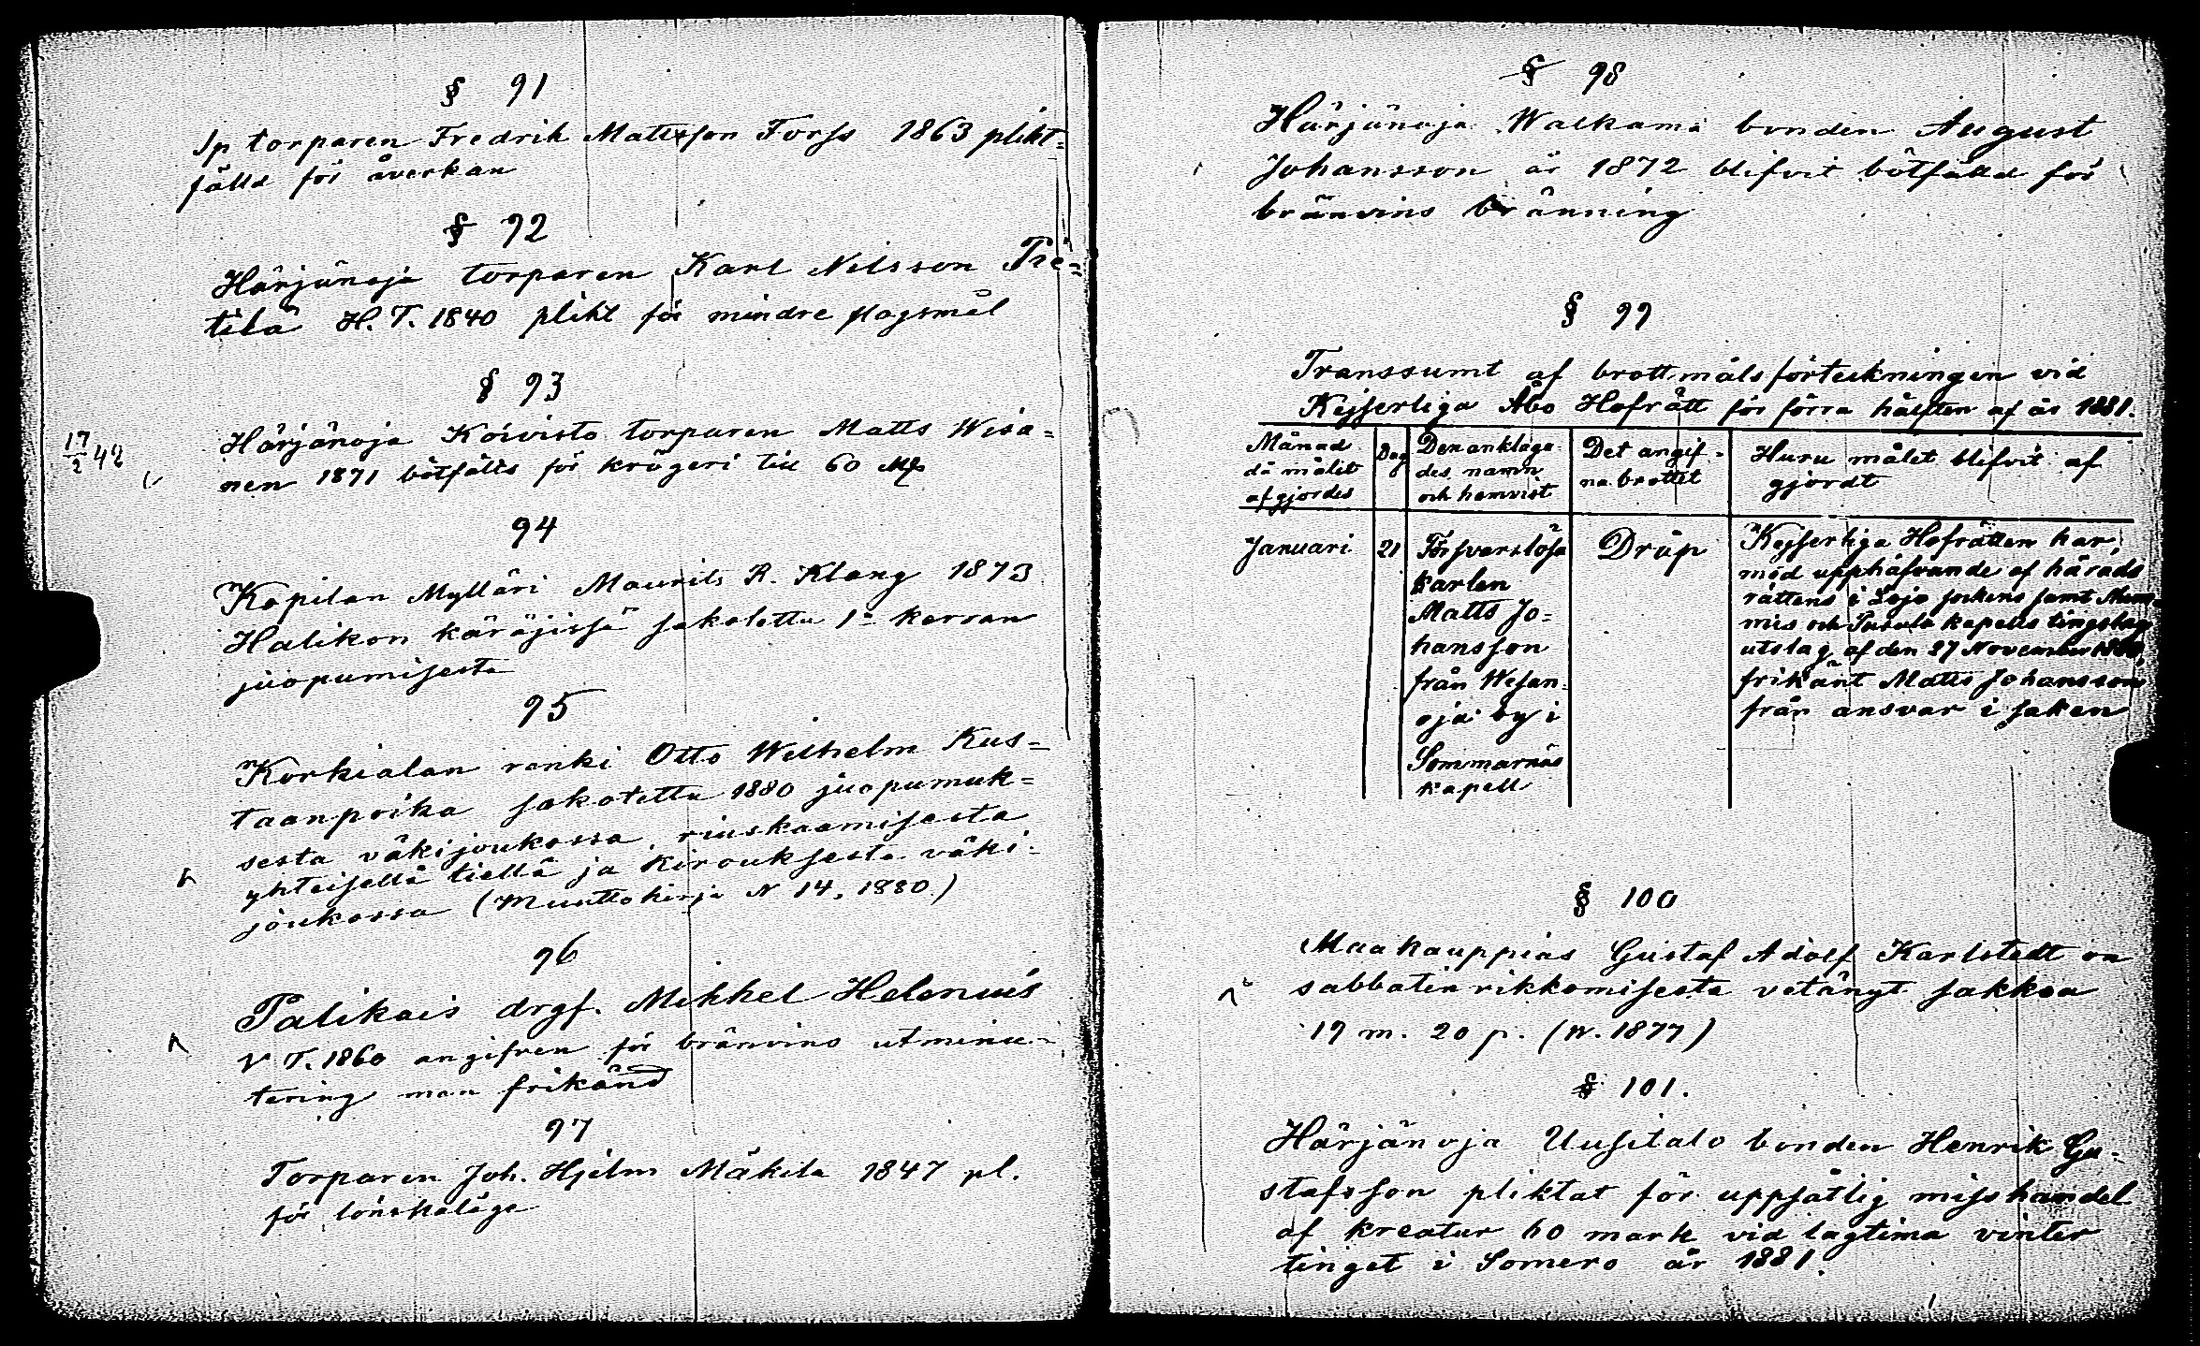 § 91
Sp torparen Fredrik Mattsson Forss 1863 plikt=
fälld för åverkan
§ 92
Härjänoja torparen Karl Nilsson Pie=
tilä H. T. 1840 plikt för mindre slagsmål
§ 93
17/2 42
Härjänoja Koivisto torparen Matts Wisa=
nen 1871 bötfälts för krögeri till 60 Mk
94
Kopilan Mylläri Maurits R. Klang 1873
Halikon käräjissä sakotettu 1ä kerran
juopumisesta
95
Korkialan renki Otto Wilhelm Kus=
taanpoika sakotettu 1880 juopumuk=
sesta väkijoukossa, riuskaamisesta
yhteisellä tiellä ja kirouksesta väki=
joukossa (Muuttokirja N 14, 1880.)
96
Palikais drgf. Mikkel Helenius
V T. 1860 angifven för bränvins utminu=
tering men frikänd
97
Torparen Joh. Hjelm Mäkilä 1847 pl.
för lönskaläge
§ 98
Härjänoja Walkama bonden August
Johansson är 1872 blifvit bötfälld för
bränvins bränning
§ 99
Transsumt af brottmålsförteckningen vid
Kejserliga Åbo Hofrätt för förra hälften af år 1881.
Månad
då målet
afgjordes
Dag
Den anklaga=
des namn
och hemvist
Det angif=
na brottet
Huru målet blifvit af
gjordt
Januari
21
Försvarslöse
karlen
Matts Jo=
hansson
från Wesan=
oja by i
Sommarnäs
kapell
Dråp
Kejserliga Hofrätten har,
med upphäfvande af härads
rättens i Lojo sockens samt Num=
mis och Pusula kapells tingslag
utslag af den 27 November 1880,
frikänt Matts Johansson
från ansvar i saken
§ 100
Maakauppias Gustaf Adolf Karlstedt on
sabbatin rikkomisesta vetänyt sakkoa
19 m. 20 p. (W. 1877)
§ 101.
Härjänoja Uusitalo bonden Henrik Gu=
stafsson pliktat för uppsåtlig misshandel
af kreatur 60 mark vid lagtima vinter
tinget i Somero år 1881.